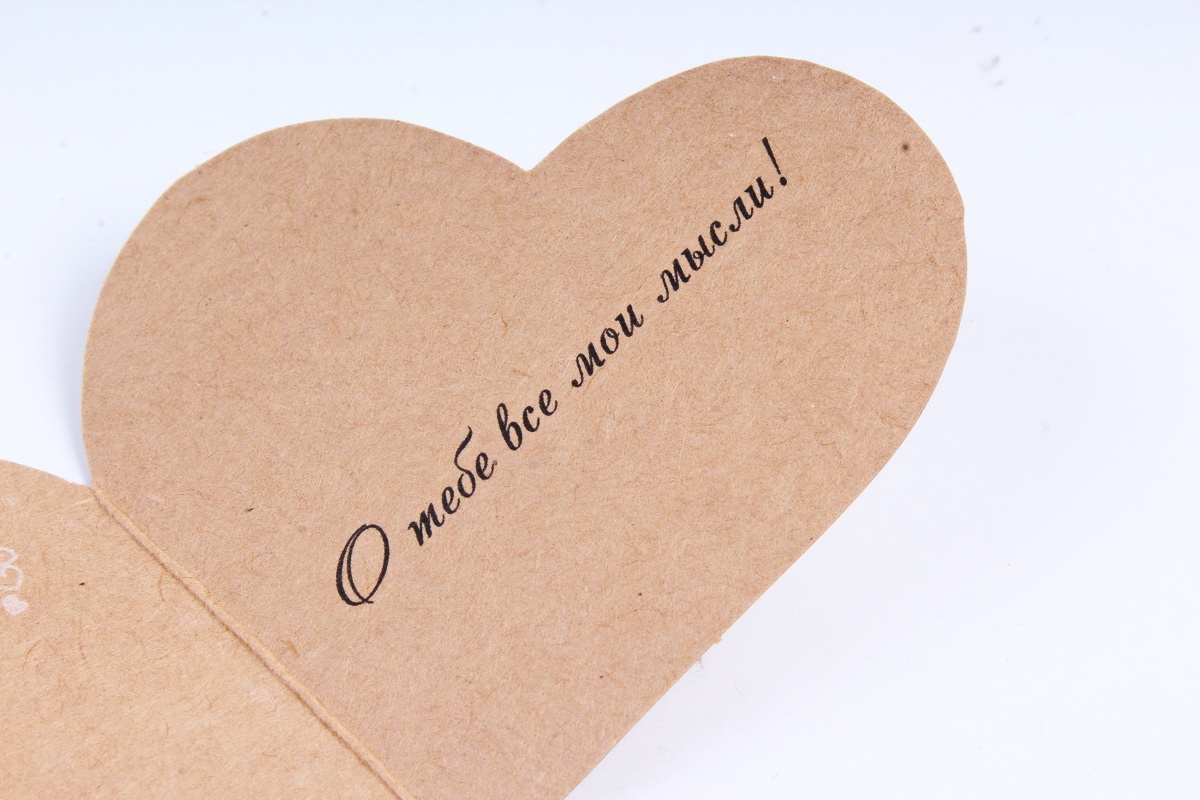 О тебе все мои мысли!